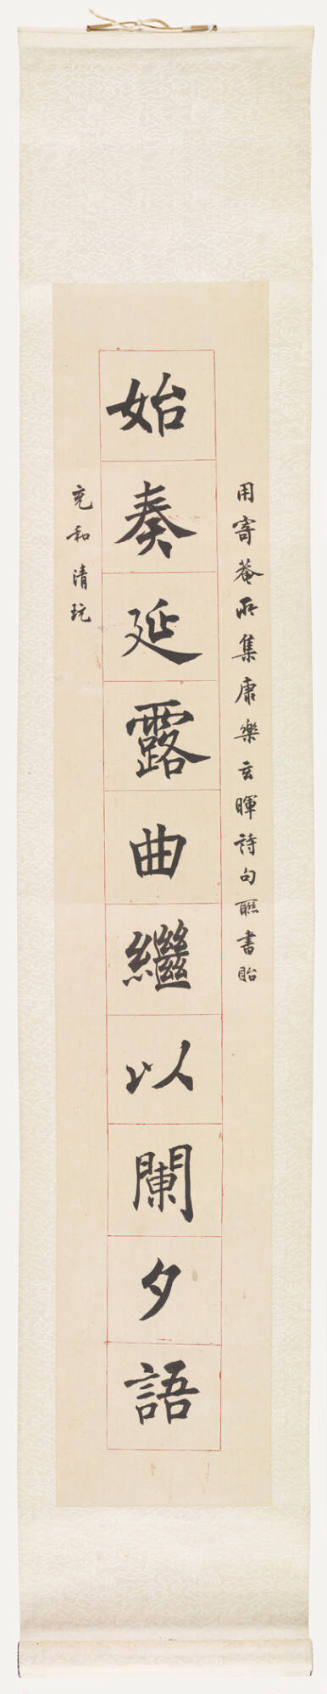 用寄菴所集康樂玄暉詩句聯書貽
始奏延露曲繼以闌夕語
充和清玩